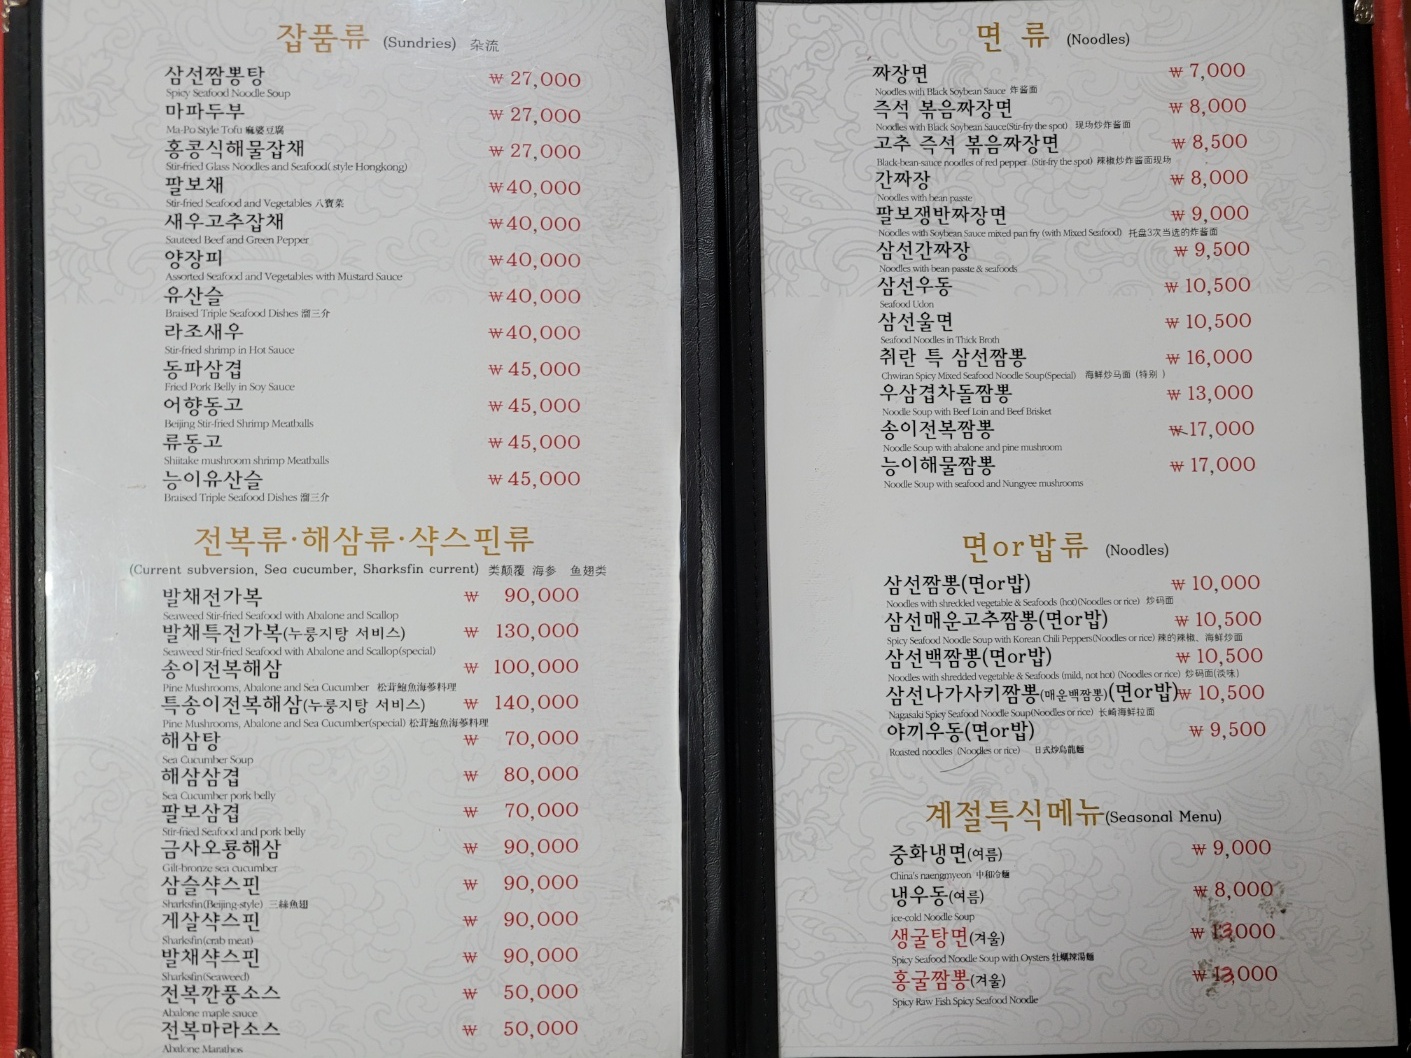 잡품류 (Sundries) 杂流
삼선짬뽕탕 ₩ 27,000
Spicy Seafood Noodle Soup
마파두부 ₩ 27,000
Ma-Po Style Tofu 麻婆豆腐
홍콩식해물잡채 ₩ 27,000
Stir-fried Glass Noodles and Seafood( style Hongkong)
팔보채 ₩40,000
Stir-fried Seafood and Vegetables 八寶菜
새우고추잡채 ₩40,000
Sauteed Beef and Green Pepper
양장피 ₩40,000
Assorted Seafood and Vegetables with Mustard Sauce
유산슬 ₩40,000
Braised Triple Seafood Dishes 溜三介
라조새우 ₩40,000
Stir-fried shrimp in Hot Sauce
동파삼겹 ₩45,000
Fried Pork Belly in Soy Sauce
어향동고 ₩45,000
Beijing Stir-fried Shrimp Meatballs
류동고 ₩45,000
Shiitake mushroom shrimp Meatballs
능이유산슬 ₩45,000
Braised Triple Seafood Dishes 溜三介
전복류·해삼류·샥스핀류
(Current subversion, Sea cucumber, Sharksfin current) 类颠覆 海参 鱼翅类
발채전가복 ₩ 90,000
Seaweed Stir-fried Seafood with Abalone and Scallop
발채특전가복(누룽지탕 서비스) ₩ 130,000
Seaweed Stir-fried Seafood with Abalone and Scallop(special)
송이전복해삼 ₩ 100,000
Pine Mushrooms, Abalone and Sea Cucumber 松茸鮑魚海蔘料理
특송이전복해삼(누룽지탕 서비스) ₩ 140,000
Pine Mushrooms, Abalone and Sea Cucumber(special) 松茸鮑魚海蔘料理
해삼탕 ₩ 70,000
Sea Cucumber Soup
해삼삼겹 ₩ 80,000
Sea Cucumber pork belly
팔보삼겹 ₩ 70,000
Stir-fried Seafood and pork belly
금사오룡해삼 ₩ 90,000
Gilt-bronze sea cucumber
삼슬샥스핀 ₩ 90,000
Sharksfin(Beijing-style) 三絲魚翅
게살샥스핀 ₩ 90,000
Sharksfin(crab meat)
발채샥스핀 ₩ 90,000
Sharksfin(Seaweed)
전복깐풍소스 ₩ 50,000
Abalone maple sauce
전복마라소스 ₩ 50,000
Abalone Marathos
면 류 (Noodles)
짜장면 ₩ 7,000
Noodles with Black Soybean Sauce 炸酱面
즉석 볶음짜장면 ₩ 8,000
Noodles with Black Soybean Sauce(Stir-fry the spot) 现场炒炸酱面
고추 즉석 볶음짜장면 ₩ 8,500
Black-bean-sauce noodles of red pepper (Stir-fry the spot) 辣椒炒炸酱面现场
간짜장 ₩ 8,000
Noodles with bean passte
팔보쟁반짜장면 ₩ 9,000
Noodles with Soybean Sauce mixed pan fry (with Mixed Seafood) 托盘3次当选的炸酱面
삼선간짜장 ₩ 9,500
Noodles with bean passte & seafoods
삼선우동 ₩ 10,500
Seafood Udon
삼선울면 ₩ 10,500
Seafood Noodles in Thick Broth
취란 특 삼선짬뽕 ₩ 16,000
Chwiran Spicy Mixed Seafood Noodle Soup(Special) 海鲜炒马面 (特别 )
우삼겹차돌짬뽕 ₩ 13,000
Noodle Soup with Beef Loin and Beef Brisket
송이전복짬뽕 ₩ 17,000
Noodle Soup with abalone and pine mushroom
능이해물짬뽕 ₩ 17,000
Noodle Soup with seafood and Nungyee mushrooms
면or밥류 (Noodles)
삼선짬뽕(면or밥) ₩ 10,000
Noodles with shredded vegetable & Seafoods (hot)(Noodles or rice) 炒码面
삼선매운고추짬뽕(면or밥) ₩ 10,500
Spicy Seafood Noodle Soup with Korean Chili Peppers(Noodles or rice) 辣的辣椒、海鲜炒面
삼선백짬뽕(면or밥) ₩ 10,500
Noodles with shredded vegetable & Seafoods (mild, not hot) (Noodles or rice) 炒码面(淡味)
삼선나가사키짬뽕(매운백짬뽕)(면or밥)₩ 10,500
Nagasaki Spicy Seafood Noodle Soup(Noodles or rice) 长崎海鲜拉面
야끼우동(면or밥) ₩ 9,500
Roasted noodles (Noodles or rice) 日式炒烏龍麵
계절특식메뉴(Seasonal Menu)
중화냉면(여름) ₩ 9,000
China's naengmyeon 中和冷麵
냉우동(여름) ₩ 8,000
ice-cold Noodle Soup
생굴탕면(겨울) ₩ 13,000
Spicy Seafood Noodle Soup with Oysters 牡蠣辣湯麵
홍굴짬뽕(겨울) ₩ 13,000
Spicy Raw Fish Spicy Seafood Noodle